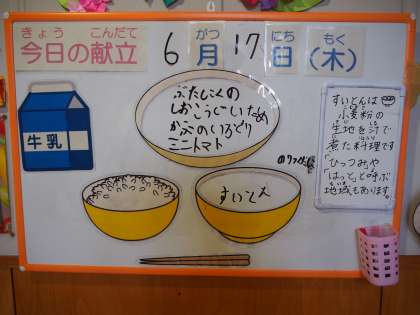 きょう こんだて
今日の献立
6月17日(木)
がつ にち もく
牛乳
ぶたにくの
しおこうじいため
かぶのいろどり
ミニトマト
すいとん
すいとんは
小麦粉の
生地を汁で
煮た料理です
ひっつみや
「はっと」と呼ぶ
地域もあります。